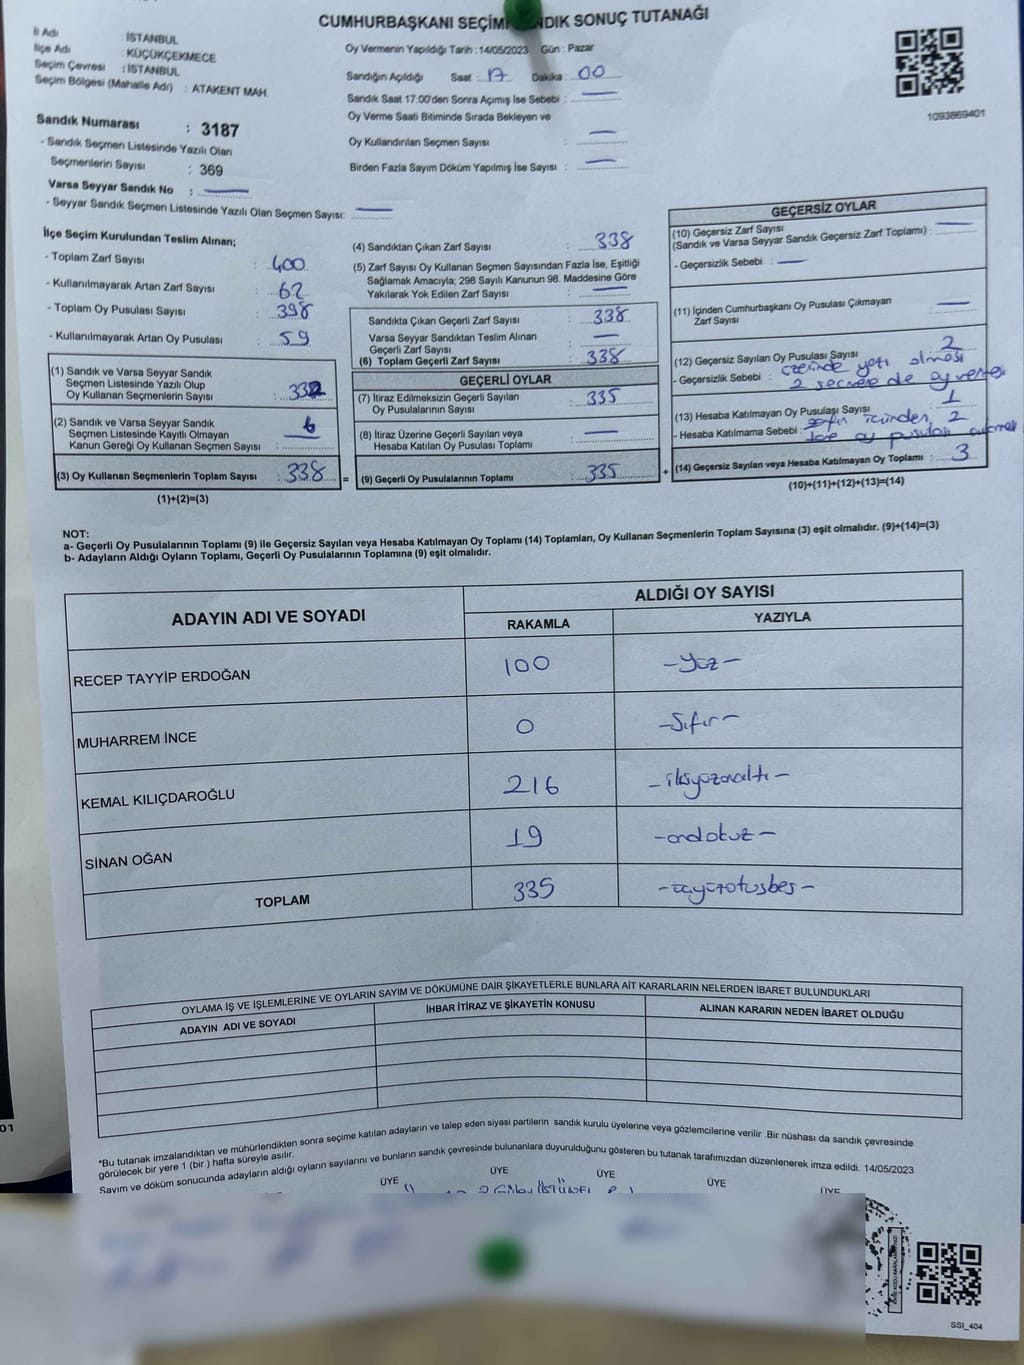 CUMHURBAŞKANI SEÇİMİ SANDIK SONUÇ TUTANAĞI
İl Adı : İSTANBUL
İlçe Adı : KÜÇÜKÇEKMECE
Seçim Çevresi : İSTANBUL
Seçim Bölgesi (Mahalle Adı) : ATAKENT MAH.
Oy Vermenin Yapıldığı Tarih : 14/05/2023 Gün : Pazar
Sandığın Açıldığı Saat : 17 Dakika : 00
Sandık Saat 17:00'den Sonra Açımış İse Sebebi : —
Oy Verme Saati Bitiminde Sırada Bekleyen ve
Oy Kullandırılan Seçmen Sayısı : —
Birden Fazla Sayım Döküm Yapılmış İse Sayısı : —
1093869401
Sandık Numarası : 3187
- Sandık Seçmen Listesinde Yazılı Olan
Seçmenlerin Sayısı : 369
Varsa Seyyar Sandık No : —
- Seyyar Sandık Seçmen Listesinde Yazılı Olan Seçmen Sayısı: —
İlçe Seçim Kurulundan Teslim Alınan;
- Toplam Zarf Sayısı : 400
- Kullanılmayarak Artan Zarf Sayısı : 62
- Toplam Oy Pusulası Sayısı : 398
- Kullanılmayarak Artan Oy Pusulası : 59
(1) Sandık ve Varsa Seyyar Sandık
Seçmen Listesinde Yazılı Olup
Oy Kullanan Seçmenlerin Sayısı : 332
(2) Sandık ve Varsa Seyyar Sandık
Seçmen Listesinde Kayıtlı Olmayan
Kanun Gereği Oy Kullanan Seçmen Sayısı : 6
(3) Oy Kullanan Seçmenlerin Toplam Sayısı : 338
(1)+(2)=(3)
(4) Sandıktan Çıkan Zarf Sayısı : 338
(5) Zarf Sayısı Oy Kullanan Seçmen Sayısından Fazla İse, Eşitliği
Sağlamak Amacıyla; 298 Sayılı Kanunun 98. Maddesine Göre
Yakılarak Yok Edilen Zarf Sayısı : —
Sandıkta Çıkan Geçerli Zarf Sayısı : 338
Varsa Seyyar Sandıktan Teslim Alınan
Geçerli Zarf Sayısı : —
(6) Toplam Geçerli Zarf Sayısı : 338
GEÇERLİ OYLAR
(7) İtiraz Edilmeksizin Geçerli Sayılan
Oy Pusulalarının Sayısı : 335
(8) İtiraz Üzerine Geçerli Sayılan veya
Hesaba Katılan Oy Pusulası Toplamı : —
= (9) Geçerli Oy Pusulalarının Toplamı : 335 +
GEÇERSİZ OYLAR
(10) Geçersiz Zarf Sayısı
(Sandık ve Varsa Seyyar Sandık Geçersiz Zarf Toplamı) : —
- Geçersizlik Sebebi : —
(11) İçinden Cumhurbaşkanı Oy Pusulası Çıkmayan
Zarf Sayısı : —
(12) Geçersiz Sayılan Oy Pusulası Sayısı : 2
- Geçersizlik Sebebi : üzerinde yazı olması
2 seçmene de oy vermesi
(13) Hesaba Katılmayan Oy Pusulası Sayısı : 1
- Hesaba Katılmama Sebebi : zarfın içinden 2
oy pusulası çıkması
(14) Geçersiz Sayılan veya Hesaba Katılmayan Oy Toplamı : 3
(10)+(11)+(12)+(13)=(14)
NOT:
a- Geçerli Oy Pusulalarının Toplamı (9) ile Geçersiz Sayılan veya Hesaba Katılmayan Oy Toplamı (14) Toplamları, Oy Kullanan Seçmenlerin Toplam Sayısına (3) eşit olmalıdır. (9)+(14)=(3)
b- Adayların Aldığı Oyların Toplamı, Geçerli Oy Pusulalarının Toplamına (9) eşit olmalıdır.
ADAYIN ADI VE SOYADI ALDIĞI OY SAYISI
RAKAMLA YAZIYLA
RECEP TAYYİP ERDOĞAN 100 -Yüz-
MUHARREM İNCE 0 -Sıfır-
KEMAL KILIÇDAROĞLU 216 -ikiyüzonaltı-
SİNAN OĞAN 19 -ondokuz-
TOPLAM 335 -üçyüzotuzbeş-
OYLAMA İŞ VE İŞLEMLERİNE VE OYLARIN SAYIM VE DÖKÜMÜNE DAİR ŞİKAYETLERLE BUNLARA AİT KARARLARIN NELERDEN İBARET BULUNDUKLARI
ADAYIN ADI VE SOYADI İHBAR İTİRAZ VE ŞİKAYETİN KONUSU ALINAN KARARIN NEDEN İBARET OLDUĞU
*Bu tutanak imzalandıktan ve mühürlendikten sonra seçime katılan adayların ve talep eden siyasi partilerin sandık kurulu üyelerine veya gözlemcilerine verilir. Bir nüshası da sandık çevresinde
görülecek bir yere 1 (bir) hafta süreyle asılır.
Sayım ve döküm sonucunda adayların aldığı oyların sayılarını ve bunların sandık çevresinde bulunanlara duyurulduğunu gösteren bu tutanak tarafımızdan düzenlenerek imza edildi. 14/05/2023
ÜYE ÜYE ÜYE ÜYE ÜYE
01
SSI_404